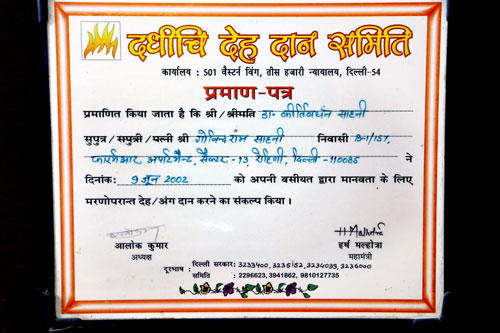 दधीचि देह दान समिति
कार्यालय : 501 वैस्टर्न विंग, तीस हजारी न्यायालय, दिल्ली-54
प्रमाण-पत्र
प्रमाणित किया जाता है कि श्री/श्रीमति डा॰ कीर्तिवर्धन साहनी
सुपुत्र/सपुत्री/पत्नी श्री गोविन्द राम साहनी निवासी B-1/157,
अपार्टमैन्ट, सैक्टर-13, रोहिणी, दिल्ली-110085 ने
दिनांक: 9 जून 2002 को अपनी वसीयत द्वारा मानवता के लिए
मरणोपरान्त देह/अंग दान करने का संकल्प किया।
आलोक कुमार
अध्यक्ष
हर्ष मल्होत्रा
महामंत्री
दूरभाष : दिल्ली सरकार: 3233400, 3235152, 3234039, 3236000
समिति : 2296623, 3941862, 9810127735